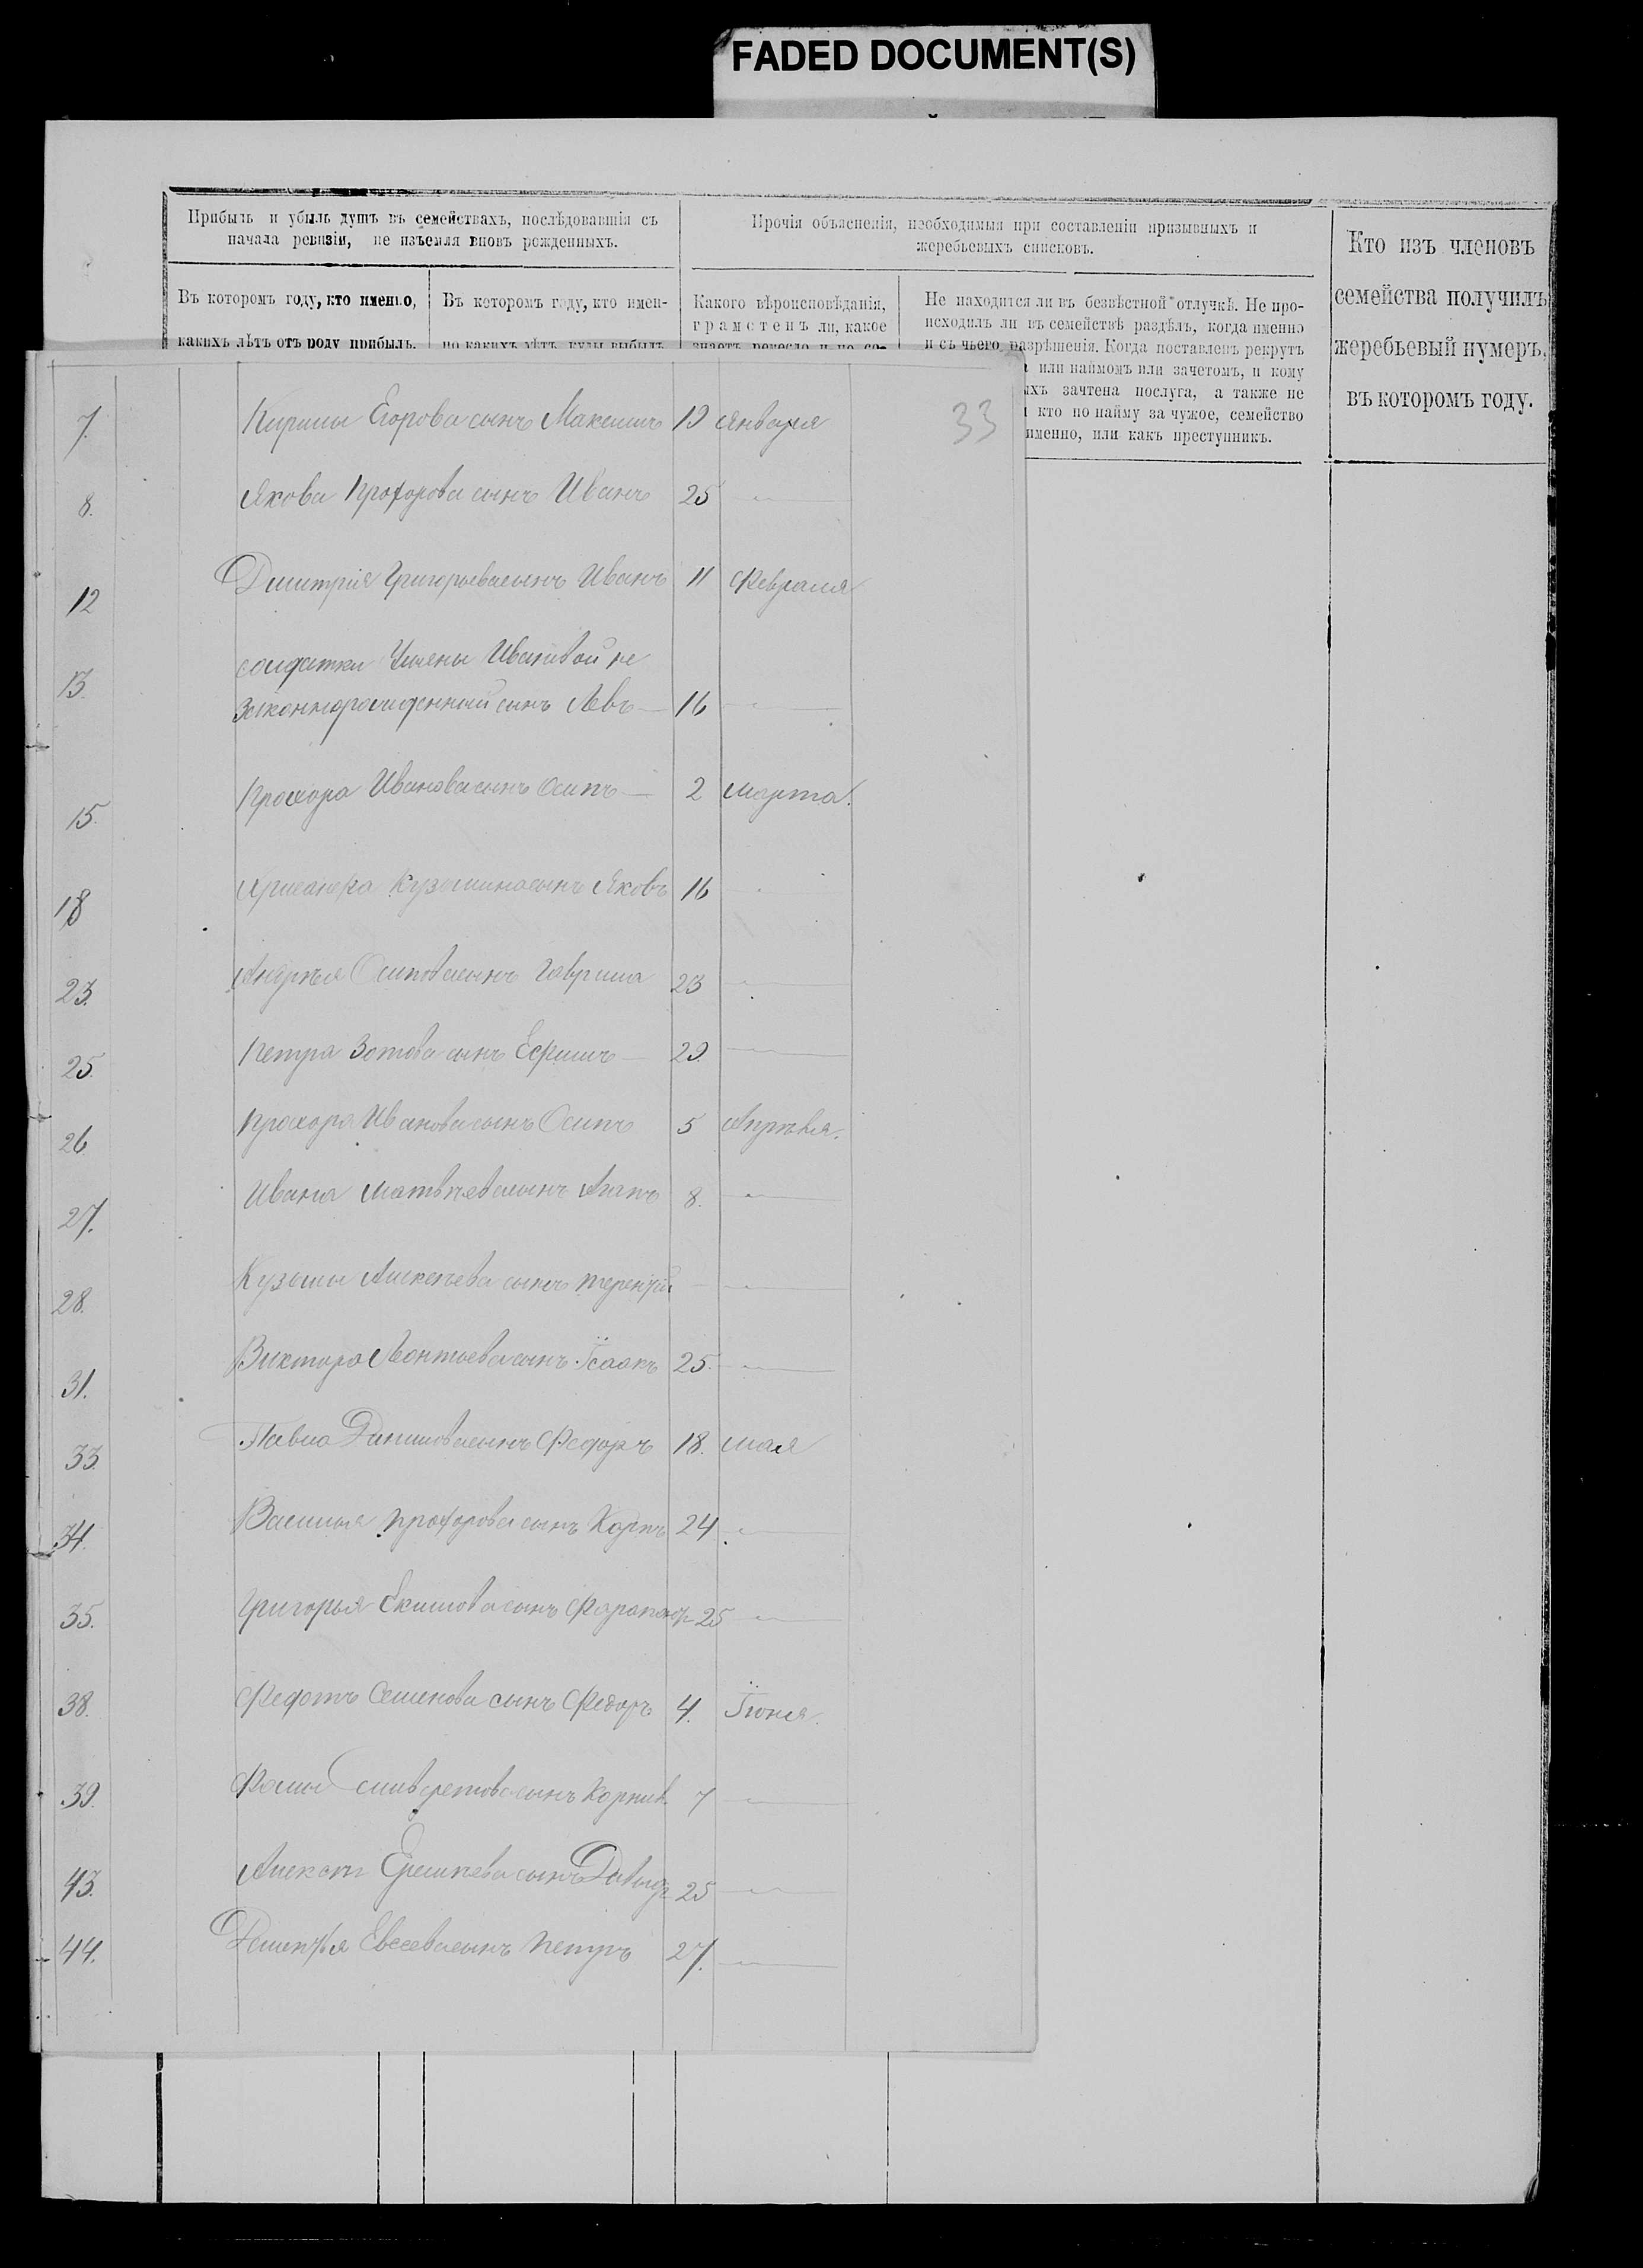 FADED DOCUMENT(S)
Прибыль и убыль душъ въ семействахъ, послѣдовавшія съ
начала ревизіи, не изъемля вновь рожденныхъ.
Прочія объясненія, необходимыя при составленіи призывныхъ и
жеребьевыхъ списковъ.
Кто изъ членовъ
семейства получилъ
жеребьевый нумеръ,
въ которомъ году.
Въ которомъ году, кто именно,
какихъ лѣтъ отъ роду прибылъ.
Въ которомъ году, кто имен-
но какихъ лѣтъ, куда выбылъ
Какого вѣроисповѣданія,
грамотенъ ли, какое
знаетъ ремесло и по се-
Не находится ли въ безвѣстной отлучкѣ. Не про-
исходилъ ли въ семействѣ раздѣлъ, когда именно
и съ чьего разрѣшенія. Когда поставленъ рекрутъ
или наймомъ или зачетомъ, и кому
ихъ зачтена послуга, а также не
кто по найму за чужое, семейство
именно, или какъ преступникъ.
33
7. Кирилы Егорова сынъ Максимъ 19 Января
8. Якова Прохорова сынъ Иванъ 25 —"—
12 Дмитрія Григорьева сынъ Иванъ 11 Февраля
13. солдатки Ивановой не
законнорожденный сынъ Левъ — 16 —"—
15. Прохора Иванова сынъ Осипъ — 2 Марта.
18 Кузьмина сынъ Яковъ 16 "
23. Андрѣя Осипова сынъ Гаврила 23 —"—
25. Петра Зотова сынъ Ефимъ — 29. —"—
26 Прохора Иванова сынъ Осипъ 5 Апрѣля.
27. Ивана Матвѣева сынъ 8. —"—
28. Кузьмы Алексѣева сынъ Терентій — —"—
31. Виктора Леонтьева сынъ Ісаакъ 25. —"—
33. Павла Данилова сынъ Федоръ 18. Мая
34. Василья Прохорова сынъ Карпъ 24 —"—
35. Григорья Екимова сынъ 25 —"—
38. Федотъ Семенова сынъ Федоръ 4. Іюня.
39. Фомы Селиверстова сынъ Корнил. 7 —"—
43. Алексѣя Еремѣева сынъ Давыдъ 25 —"—
44. Дементья Евсеева сынъ Петръ 27. —"—